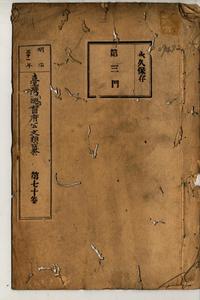 永久保存
第三門
明治
臺灣總督府公文類纂
第七十卷